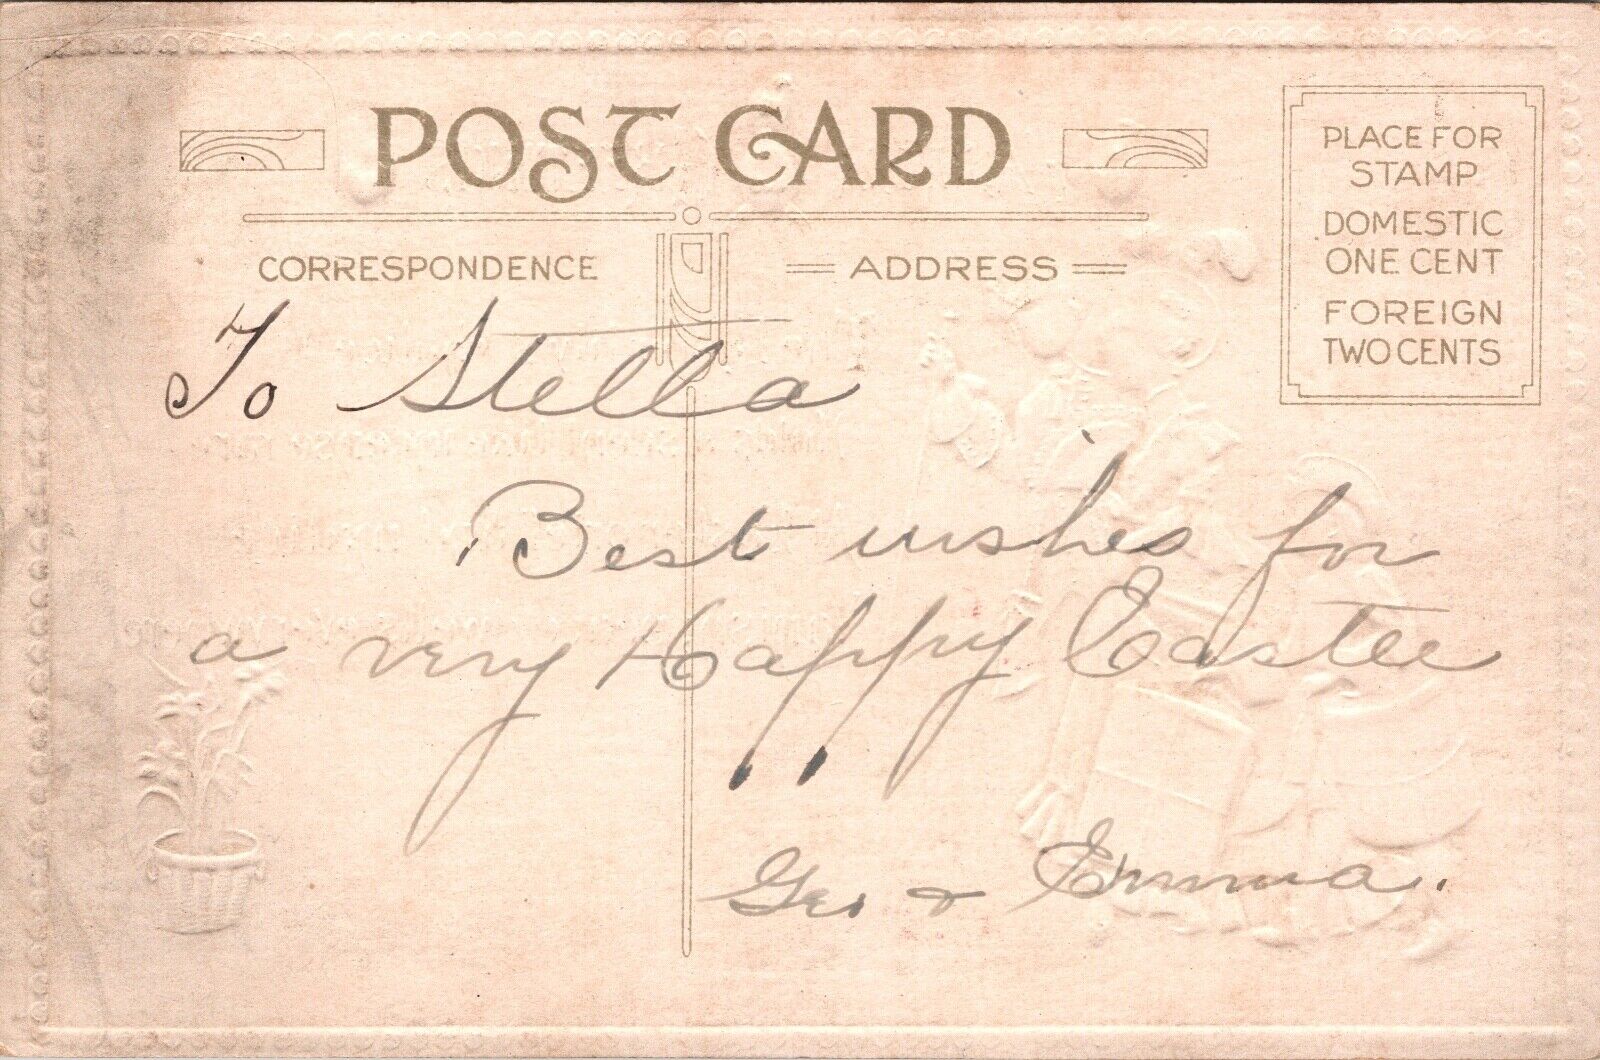 POST CARD
CORRESPONDENCE
ADDRESS
PLACE FOR
STAMP
DOMESTIC
ONE CENT
FOREIGN
TWO CENTS
To Stella
Best wishes for
a very Happy Easter
Geo & Emma.